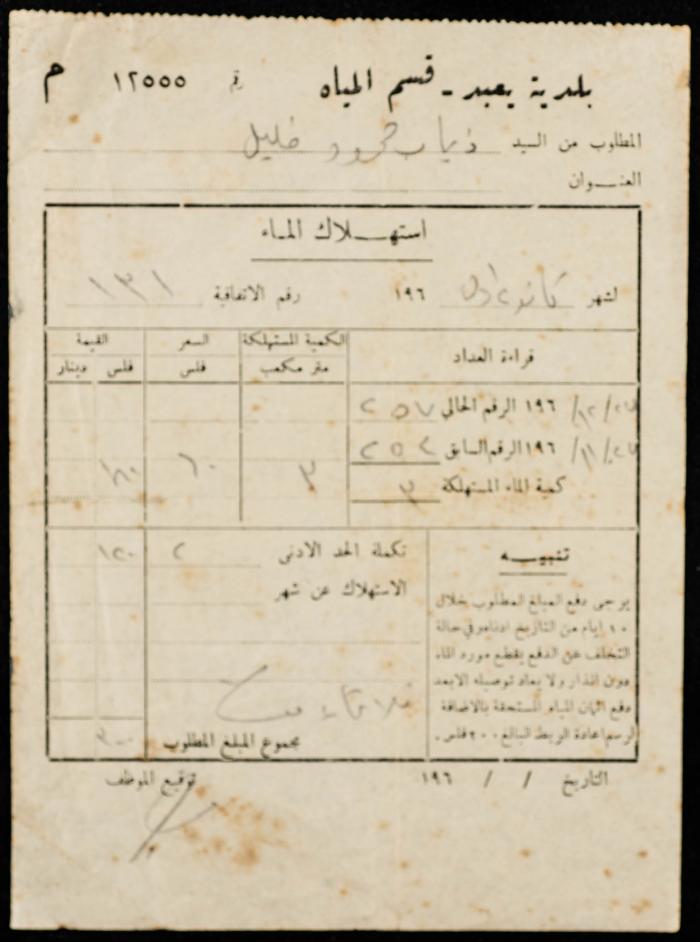 بلدية يعبد - قسم المياه رقم ١٢٥٥٥ م
المطلوب من السيد ذياب محمود خليل
العنوان
استهلاك الماء
لشهر كانون اول ١٩٦ رقم الاتفاقية ١٣١
قراءة العداد الكمية المستهلكة السعر القيمة
متر مكعب فلس فلس دينار
١٢/٢٧/ ١٩٦ الرقم الحالي ٢٥٧
١١/٢٧/ ١٩٦ الرقم السابق ٢٥٤
كمية الماء المستهلكة ٣ ٣ ٦٠ ١٨٠
تنبيه
يرجى دفع المبلغ المطلوب خلال
١٠ ايام من التاريخ ادناه وفي حالة
التخلف عن الدفع يقطع مورد الماء
دون انذار ولا يعاد توصيله الا بعد
دفع اثمان المياه المستحقة بالاضافة
لرسم اعادة الربط البالغ ٢٠٠ فلس .
تكملة الحد الادنى ٢ ١٢٠
الاستهلاك عن شهر
مجموع المبلغ المطلوب ٣٠٠
التاريخ / / ١٩٦ توقيع الموظف